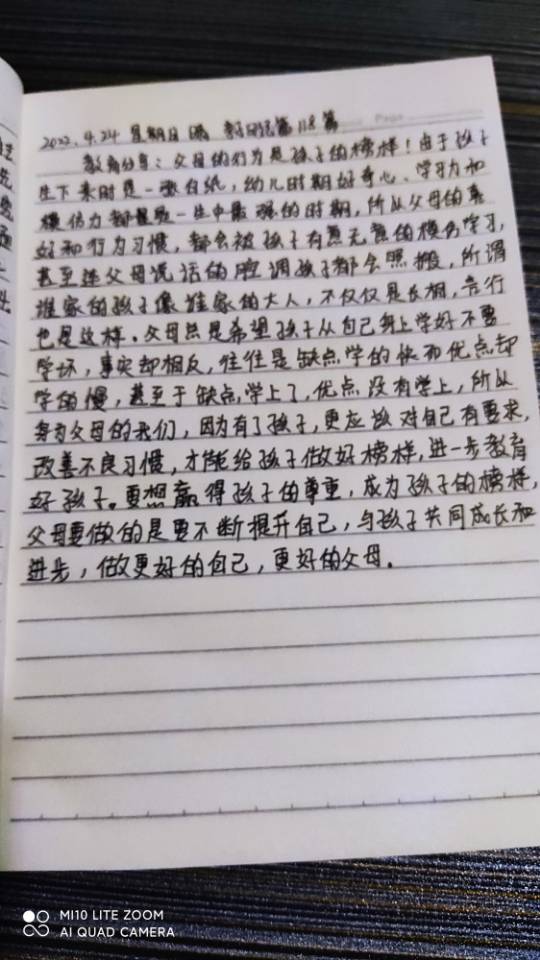 Page
2022.4.24 星期日 晴 第118篇
教育分享：父母的行为是孩子的榜样！由于孩子
生下来时是一张白纸，幼儿时期好奇心、学习力和
模仿力都是一生中最强的时期，所以父母的喜
好和行为习惯，都会被孩子有意无意的模仿学习，
甚至连父母说话的腔调孩子都会照搬，所谓
谁家的孩子像谁家的大人，不仅仅是长相，言行
也是这样。父母总是希望孩子从自己身上学好不要
学坏，事实却相反，往往是缺点学的快而优点却
学的慢，甚至于缺点学上了，优点没有学上，所以
身为父母的我们，因为有了孩子，更应该对自己有要求，
改善不良习惯，才能给孩子做好榜样，进一步教育
好孩子。要想赢得孩子的尊重，成为孩子的榜样，
父母要做的是要不断提升自己，与孩子共同成长和
进步，做更好的自己，更好的父母。
MI10 LITE ZOOM
AI QUAD CAMERA